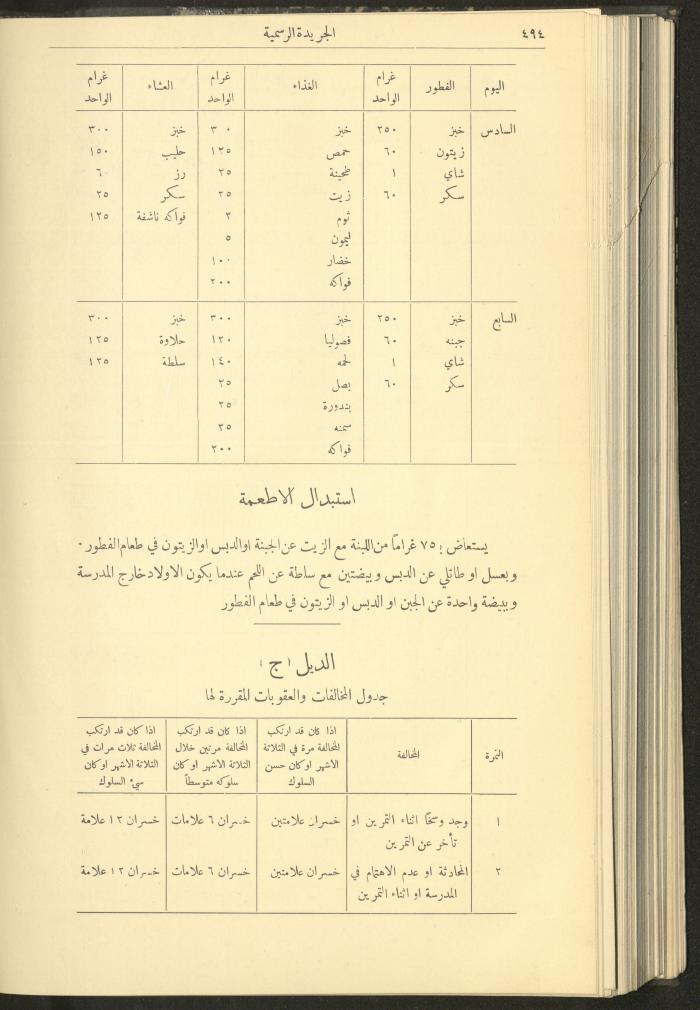 ٤٩٤ الجريدة الرسمية
اليوم الفطور غرام الواحد الغذاء غرام الواحد العشاء غرام الواحد
السادس خبز ٢٥٠ خبز ٣٠٠ خبز ٣٠٠
زيتون ٦٠ حمص ١٢٥ حليب ١٥٠
شاي ١ طحينة ٢٥ رز ٦٠
سكر ٦٠ زيت ٢٥ سكر ٢٥
ثوم ٢ فواكه ناشفة ١٢٥
ليمون ٥
خضار ١٠٠
فواكه ٢٠٠
السابع خبز ٢٥٠ خبز ٣٠٠ خبز ٣٠٠
جبنه ٦٠ فصوليا ١٢٠ حلاوة ١٢٥
شاي ١ لحمه ١٤٠ سلطة ١٢٥
سكر ٦٠ بصل ٢٥
بندورة ٢٥
سمنه ٢٥
فواكه ٢٠٠
استبدال الاطعمة
يستعاض : ٧٥ غراماً من اللبنة مع الزيت عن الجبنة او الدبس او الزيتون في طعام الفطور ٠
وبعسل او طاتلي عن الدبس وبيضتين مع سلطة عن اللحم عندما يكون الاولاد خارج المدرسة
وبيضة واحدة عن الجبن او الدبس او الزيتون في طعام الفطور
الذيل (ج)
جدول المخالفات والعقوبات المقررة لها
النمرة
المخالفة
اذا كان قد ارتكب
المخالفة مرة في الثلاثة
الاشهر او كان حسن
السلوك
اذا كان قد ارتكب
المخالفة مرتين خلال
الثلاثة الاشهر او كان
سلوكه متوسطاً
اذا كان قد ارتكب
المخالفة ثلاث مرات في
الثلاثة الاشهر او كان
سيء السلوك
١ وجد وسخاً اثناء التمرين او خسران علامتين خسران ٦ علامات خسران ١٢ علامة
تأخر عن التمرين
٢ المحادثة او عدم الاهتمام في خسران علامتين خسران ٦ علامات خسران ١٢ علامة
المدرسة او اثناء التمرين